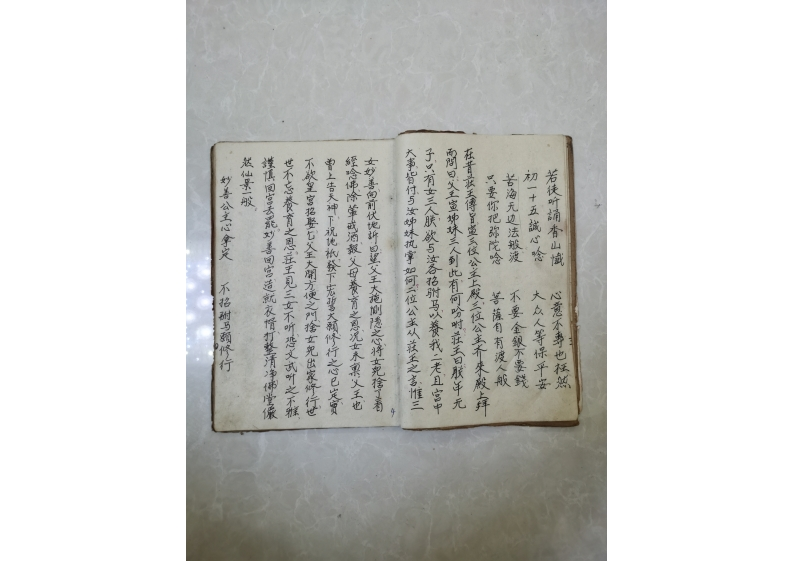 若徒听誦香山懺　心意不專也枉然
初一十五誠心唸　大众人等保平安
苦海无边法船渡　不要金銀不要錢
只要你把弥陀唸　菩薩自有渡人般
在昔莊王傳旨宣三位公主上殿三位公主齐来殿上拜
而問曰父王宣姊妹三人到此有何吩咐莊王曰朕年元
子只有女三人朕欲与汝各招駙马以養我二老且宮中
大事皆付与汝姊妹执掌如何二位公主从莊王之言惟三
女妙善向前伏地訴曰望父王大施惻隱之心將女兒捨了看
經唸佛除葷戒酒報父母養育之恩況女未禀父王也
曾上告天神下祝地祇發下宏誓大願修行之心已定實
不欲皇宮招娶乞父王大開方便之門捨女兒出家修行世
世不忘養育之恩莊王見三女不听恐文武听之不雅
謹慎回宮去罷妙善回宮造就衣㡡打整清净佛堂儼
然仙景一般
妙善公主心拿定　不招駙马願修行